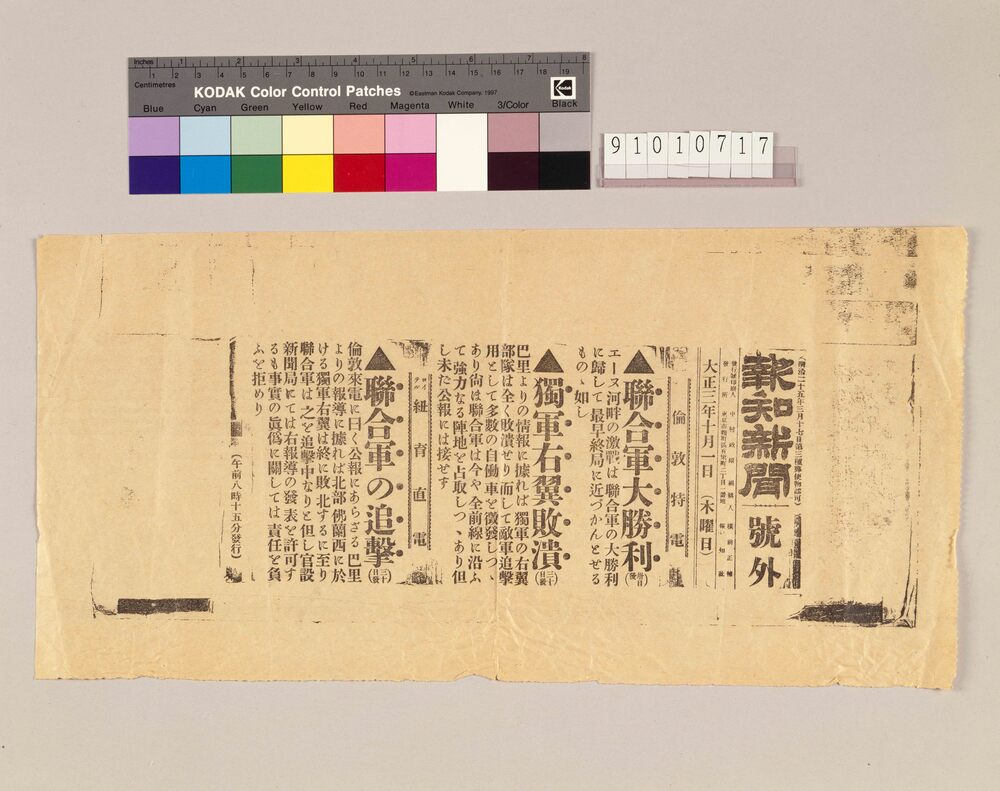 Inches 1 2 3 4 5 6 7 8
Centimetres 1 2 3 4 5 6 7 8 9 10 11 12 13 14 15 16 17 18 19
KODAK Color Control Patches ©Eastman Kodak Company, 1997
Kodak
Blue Cyan Green Yellow Red Magenta White 3/Color Black
91010717
報知新聞 號外
大正三年十月一日 (木曜日)
倫敦特電
▲聯合軍大勝利(卅日發)
エーヌ河畔の激戰は聯合軍の大勝利
に歸して最早終局に近づかんとせる
ものゝ如し
▲獨軍右翼敗潰(三十日發)
巴里よりの情報に據れば獨軍の右翼
部隊は全く敗潰せり而して敵軍追擊
用として多數の自働車を徵發しつゝ
あり尙は聯合軍は今や全前線に沿ふ
て強力なる陣地を占取しつゝあり但
し未た公報には接せず
紐育直電
▲聯合軍の追擊(三十日發)
倫敦來電に曰く公報にあらざる巴里
よりの報導に據れば北部佛蘭西に於
ける獨軍右翼は終に敗北するに至り
聯合軍は之を追擊中なりと但し官設
新聞局にては右報導の發表を許可す
るも事實の眞僞に關しては責任を負
ふを拒めり
(午前八時十五分發行)